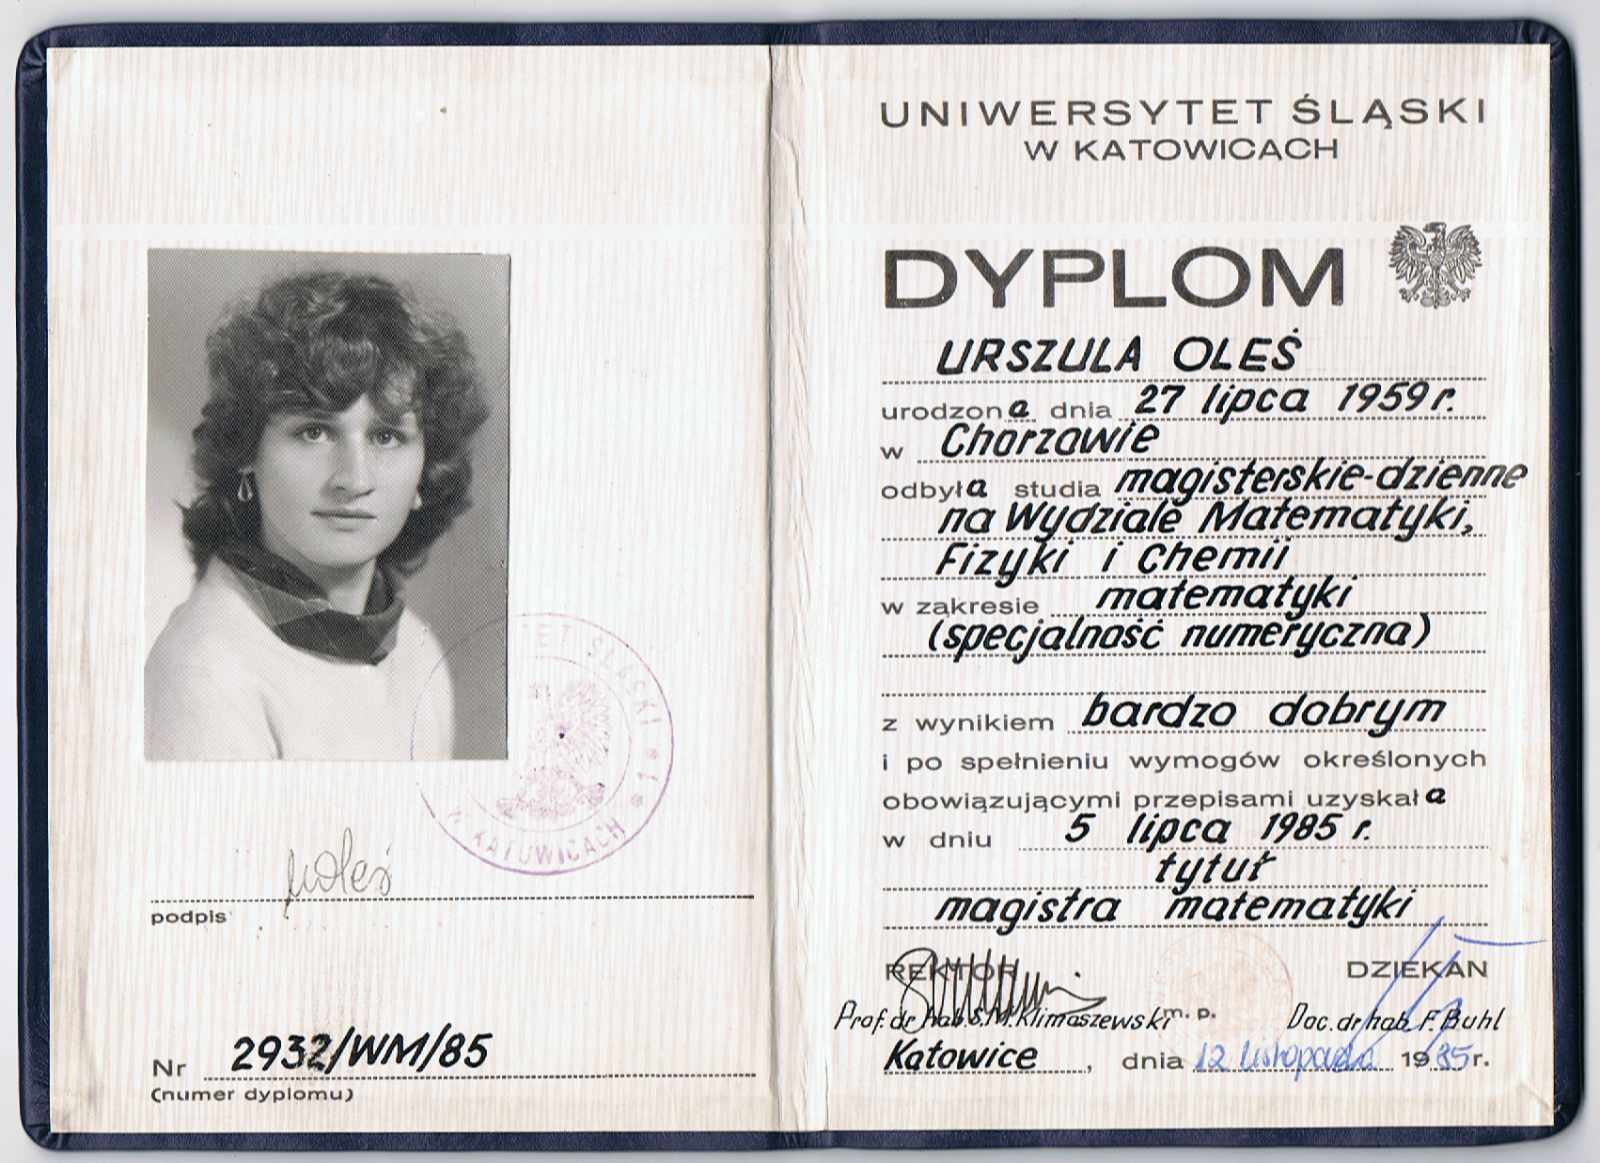 TET ŚLĄSKI
W KATOWICACH
* 1 *
uOleś
podpis
Nr 2932/WM/85
(numer dyplomu)
UNIWERSYTET ŚLĄSKI
W KATOWICACH
DYPLOM
URSZULA OLEŚ
urodzona dnia 27 lipca 1959 r.
w Chorzowie
odbyła studia magisterskie-dzienne
na Wydziale Matematyki,
Fizyki i Chemii
w zakresie matematyki
(specjalność numeryczna)
z wynikiem bardzo dobrym
i po spełnieniu wymogów określonych
obowiązującymi przepisami uzyskała
w dniu 5 lipca 1985 r.
tytuł
magistra matematyki
REKTOR DZIEKAN
Prof. dr hab. S.M. Klimaszewski m. p. Doc. dr hab. F. Buhl
Katowice, dnia 12 listopada 1985 r.